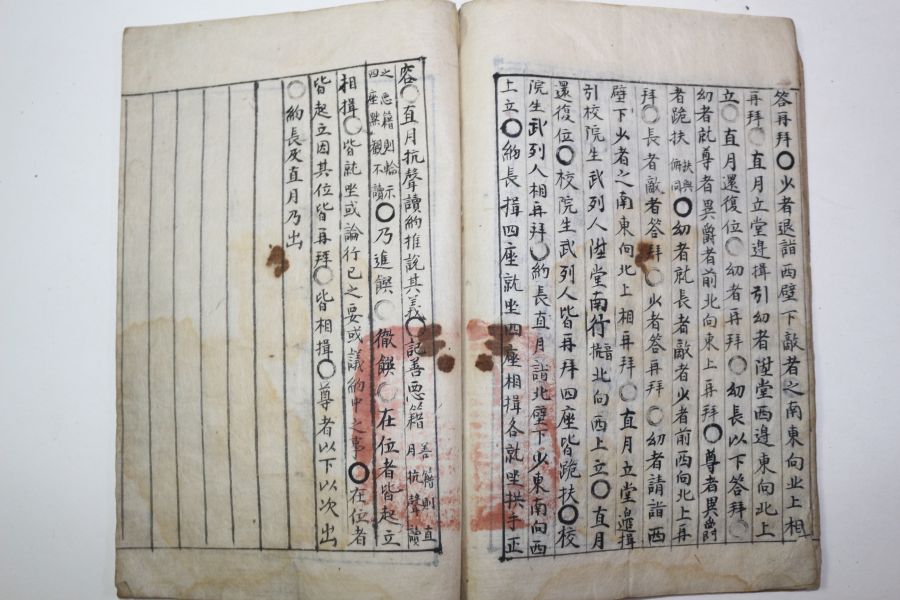 答再拜○少者退詣西壁下敵者之南東向北上相
再拜○直月立堂邊揖引幼者陞堂西邊東向北上
立○直月還復位○幼者再拜○幼長以下答拜○
幼者就尊者異爵者前北向東上再拜○尊者異爵
者跪扶扶與俯同○幼者就長者敵者少者前西向北上再
拜○長者敵者答拜○少者答再拜○幼者請詣西
壁下少者之南東向北上相再拜○直月立堂邊揖
引校院生武列人陞堂南行北向西上立○直月
還復位○校院生武列人皆再拜四座皆跪扶○校
院生武列人相再拜○約長直月詣北壁下少東南向西
上立○約長揖四座就坐四座相揖各就坐拱手正
容○直月抗聲讀約推說其義○記善惡籍善籍則直月抗聲讀
之惡籍則輪示四座默觀不讀○乃進饌○徹饌○在位者皆起立
相揖○皆就坐或論行己之要或議約中之事○在位者
皆起立因其位皆再拜○皆相揖○尊者以下以次出
○約長及直月乃出